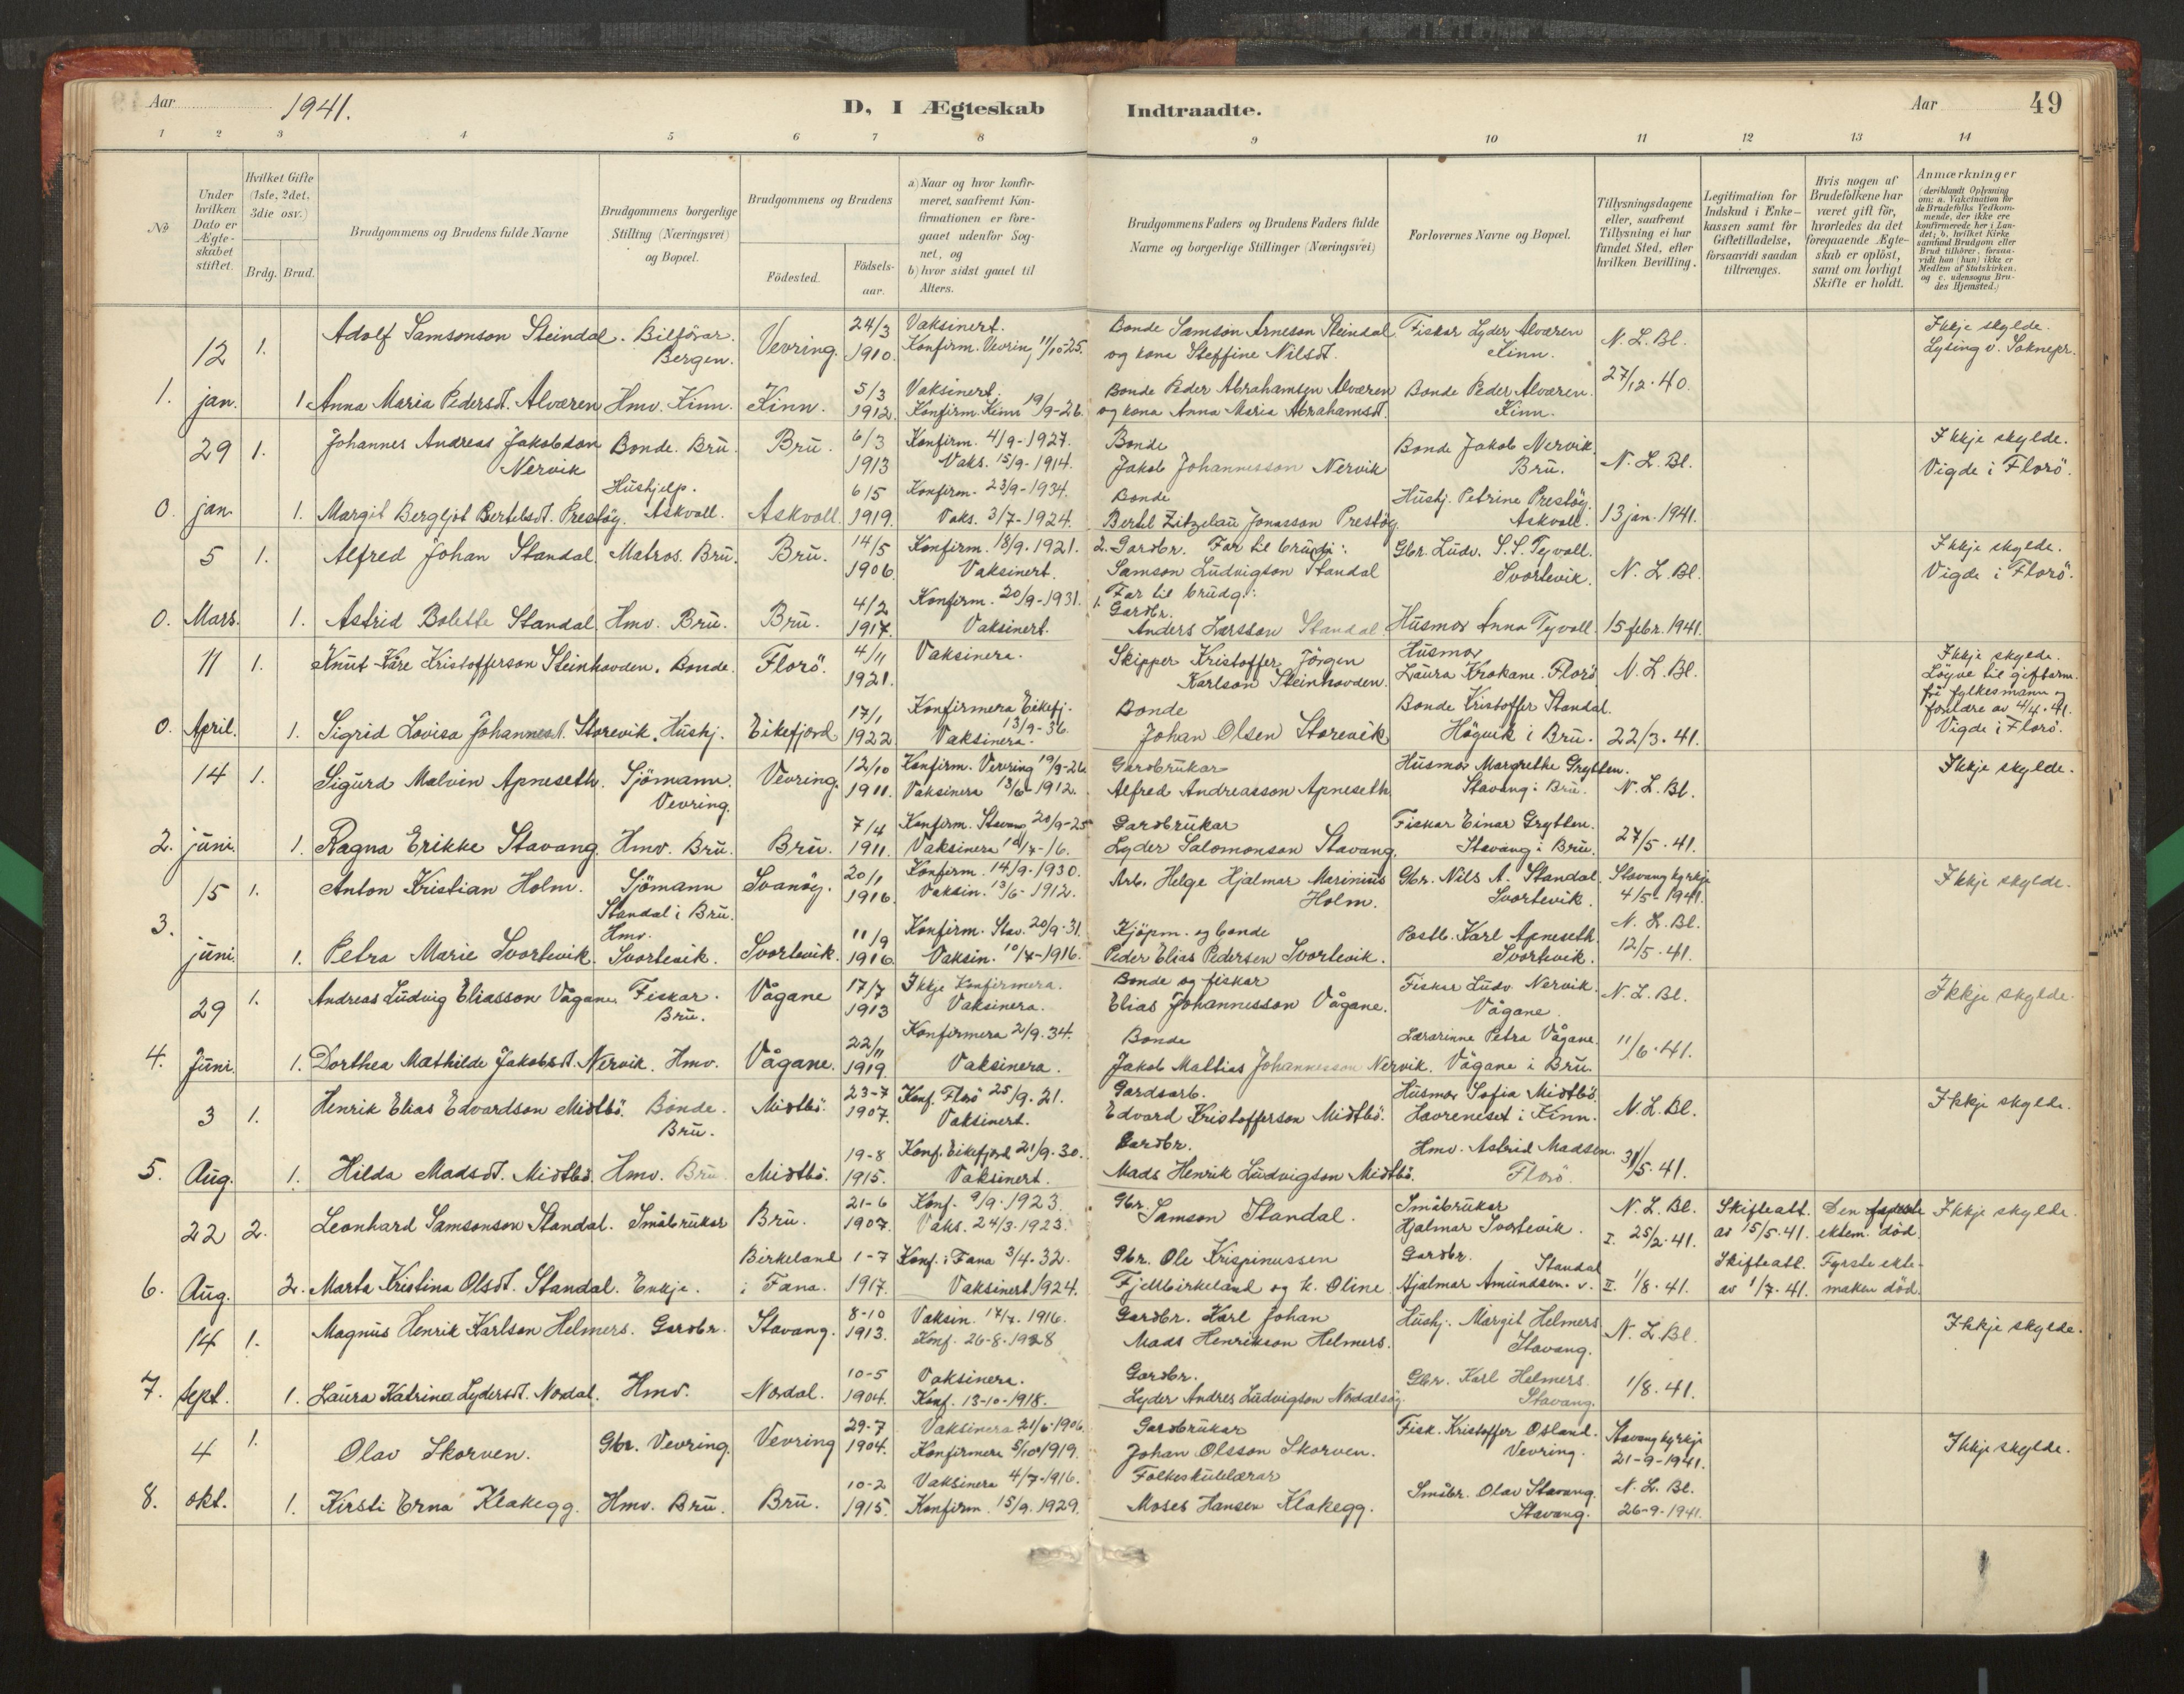 Aar 1941. D, I Ægteskab Indtraadte. Aar 49
1 2 3 4 5 6 7 8 9 10 11 12 13 14
No
Under hvilken Dato er Ægte-skabet stiftet.
Hvilket Gifte (1ste, 2det, 3die osv.)
Brdg. Brud.
Brudgommens og Brudens fulde Navne
Brudgommens borgerlige Stilling (Næringsvei) og Bopæl.
Brudgommens og Brudens
Fødested.
Fødsels-aar.
a) Naar og hvor konfir-meret, saafremt Kon-firmationen er fore-gaaet udenfor Sog-net, og
b) hvor sidst gaaet til Alters.
Brudgommens Faders og Brudens Faders fulde Navne og borgerlige Stillinger (Næringsvei)
Forlovernes Navne og Bopæl.
Tillysningsdagene eller, saafremt Tillysning ei har fundet Sted, efter hvilken Bevilling.
Legitimation for Indskud i Enke-kassen samt for Giftetilladelse, forsaavidt saadan tiltrænges.
Hvis nogen af Brudefolkene har været gift før, hvorledes da det foregaaende Ægte-skab er opløst, samt om lovligt Skifte er holdt.
Anmærkninger (deriblandt Oplysning om: a. Vakcination for de Brudefolks Vedkom-mende, der ikke ere konfirmerede her i Lan-det; b. hvilket Kirke-samfund Brudgom eller Brud tilhører, forsaa-vidt han (hun) ikke er Medlem af Statskirken, og c. udensogns Bru-des Hjemsted.)
12 1. Adolf Samsonson Steindal. Bilförar. Bergen. Vevring. 24/3 1910. Vaksinert. Konfirm. Vevring 11/10-25. Bonde Samson Arneson Steindal og kona Steffine Nilsdt. Fiskar Lyder Alværen Kinn. N. L. Bl. Ikkje skylde. Lysing v. Soknepr.
1. jan. 1 Anna Maria Pedersdt. Alværen Hmv. Kinn. Kinn. 5/3 1912. Vaksinert. Konfirm. Kinn 19/9-26. Bonde Peder Abrahamsen Alværen og kona Anna Maria Abrahamsdt. Bonde Peder Alværen. Kinn. 27/12.40.
29 1. Johannes Andreas Jakobson Nervik Bonde. Bru. Bru. 6/3 1913 Konfirm. 4/9-1927. Vaks. 15/9-1914. Bonde Jakob Johannesson Nervik Bonde Jakob Nervik Bru. N. L. Bl. Ikkje skylde. Vigde i Florö.
0. jan. 1. Margit Bergljot Bertelsdt. Prestöy. Hushjelp. Askvoll. Askvoll. 6/5 1919. Konfirm. 23/9-1934. Vaks. 3/7-1924. Bonde Bertel Zitzelau Jonasson Prestöy. Hushj. Petrine Prestöy. Askvoll. 13 jan. 1941.
5 1. Alfred Johan Standal. Matros. Bru. Bru. 14/5 1906. Konfirm. 18/9-1921. Vaksinert. 2. Gardbr. Far til brudi: Samson Ludvigson Standal Gbr. Ludv. S. S. Tyvoll. Svortevik. N. L. Bl. Ikkje skylde. Vigde i Florö.
0. Mars. 1. Astrid Bolette Standal. Hmv. Bru. Bru. 4/2 1917. Konfirm. 20/9-1931. Vaksinert. 1. Far til brudg.: Gardbr. Anders Larsson Standal. Husmor Anna Tyvoll. 15 febr. 1941.
11 1. Knut Kåre Kristofferson Steinhovden. Bonde. Florö. 4/11 1921. Vaksinera. Skipper Kristoffer Jörgen Karlson Steinhovden. Husmor Laura Krokane. Florö. N. L. Bl. Ikkje skylde. Löyve til giftarm. frå fylkesmann og foreldre av 4/4.41. Vigde i Florö.
0. April. 1. Sigrid Lovisa Johannesdt. Storevik. Hushj. Eikefjord 17/1 1922 Konfirmera Eikefj. 13/9-36. Vaksinera. Bonde Johan Olsen Storevik Bonde Kristoffer Standal. Högvik i Bru. 22/3.41.
14 1. Sigurd Malvin Apneseth. Sjömann. Vevring. Vevring. 12/10 1911. Konfirm. Vevring 19/9-26 Vaksinera 13/6-1912. Gardbrukar Alfred Andreasson Apneseth Husmor Margrethe Grytten. Stavang i Bru. N. L. Bl. Ikkje skylde.
2. juni. 1. Ragna Erikke Stavang. Hmv. Bru. Bru. 7/4 1911. Konfirm. Stavang 20/9-25 Vaksinera 10/7-16. Gardbrukar Lyder Salomonson Stavang. Fiskar Einar Grytten. Stavang i Bru. 27/5.41.
15 1. Anton Kristian Holm. Sjömann Standal i Bru. Svanöy. 20/1 1916. Konfirm. 14/9-1930. Vaksin. 13/6-1912. Arb. Helge Hjalmar Marinius Holm. Gbr. Nils A. Standal. Svortevik. Stavang kyrkje 4/5-1941. Ikkje skylde.
3. juni. 1. Petra Marie Svortevik. Hmv. Svortevik. Svortevik. 11/9 1916 Konfirm. Stav. 20/9-31. Vaksin. 10/7-1916. Kjöpm. og bonde Peder Elias Pedersen Svortevik. Postb. Karl Apneseth. Svortevik. N. L. Bl. 12/5.41.
29 1. Andreas Ludvig Eliasson Vågane. Fiskar. Bru. Vågane 17/7 1913 Ikkje Konfirmera. Vaksinera. Bonde og fiskar Elias Johannesson Vågane. Fiskar Ludv. Nervik. Vågane. N. L. Bl. Ikkje skylde.
4. Juni. 1. Dorthea Mathilde Jakobsdt. Nervik. Hmv. Vågane. 22/11 1919. Konfirmera 2/9.34. Vaksinera. Bonde Jakob Mathias Johannesson Nervik. Lærarinne Petra Vågane. Vågane i Bru. 11/6.41.
3 1. Henrik Elias Edvardson Midtbö. Bonde. Bru. Midtbö. 23-7 1907. Konf. Florö 25/9.21. Vaksinert. Gardsarb. Edvard Kristofferson Midtbö. Husmor Sofia Midtbö. Havreneset i Kinn. N. L. Bl. Ikkje skylde.
5. Aug. 1. Hilda Madsdt. Midtbö. Hmv. Bru Midtbö. 19-8 1915. Konf. Eikefjord 21/9.30. Vaksinert. Gardbr. Mads Henrik Ludvigson Midtbö. Hmv. Astrid Madsen. Florö. 31/5.41.
22 2. Leonhard Samsonson Standal. Småbrukar Bru. 21-6 1907. Konf. 9/9.1923. Vaks. 24/3.1923. Gbr. Samson Standal. Småbrukar Hjalmar Svortevik. N. L. Bl. I. 25/2.41. Skifteatt. av 15/5.41. Den ektem. död. Ikkje skylde.
6. Aug. 2. Marta Kristina Olsdt. Standal. Enkje. Birkeland i Fana. 1-7 1917. Konf. i Fana 3/4.32. Vaksinert 1924. Gbr. Ole Krispinussen Fjellbirkeland og k. Oline Gardbr. Hjalmar Amundsen. v. Standal II. 1/8.41. Skifteatt. av 1/7.41. Fyrste ekte-maken död.
14 1. Magnus Henrik Karlson Helmers. Gardbr. Stavang. 8-10 1913. Vaksin. 17/7.1916. Konf. 26-8.1928 Gardbr. Karl Johan Mads Henrikson Helmers. Hushj. Margit Helmers Stavang. N. L. Bl. Ikkje skylde.
7. Sept. 1. Laura Katrina Lydersdt. Nordal. Hmv. Nordal. 10-5 1904. Vaksinera. Konf. 13-10-1918. Gardbr. Lyder Andres Ludvigson Nordalsöy. Gbr. Karl Helmers. Stavang. 1/8.41.
4 1. Olav Skorven. Gbr. Vevring. Vevring 29-7 1904. Vaksinera 21/6-1906. Konfirmera 5/10 1919. Gardbrukar Johan Olsson Skorven. Fisk. Kristoffer Osland. Vevring. Stavang kyrkje 21-9-1941. Ikkje skylde.
8. okt. 1. Kirsti Erna Klakegg. Hmv. Bru. Bru. 10-2 1915. Vaksinera 4/7-1916. Konfirm. 15/9.1929. Folkeskulelærar Moses Hansen Klakegg. Småbr. Olav Stavang. Stavang. N. L. Bl. 26-9-1941.